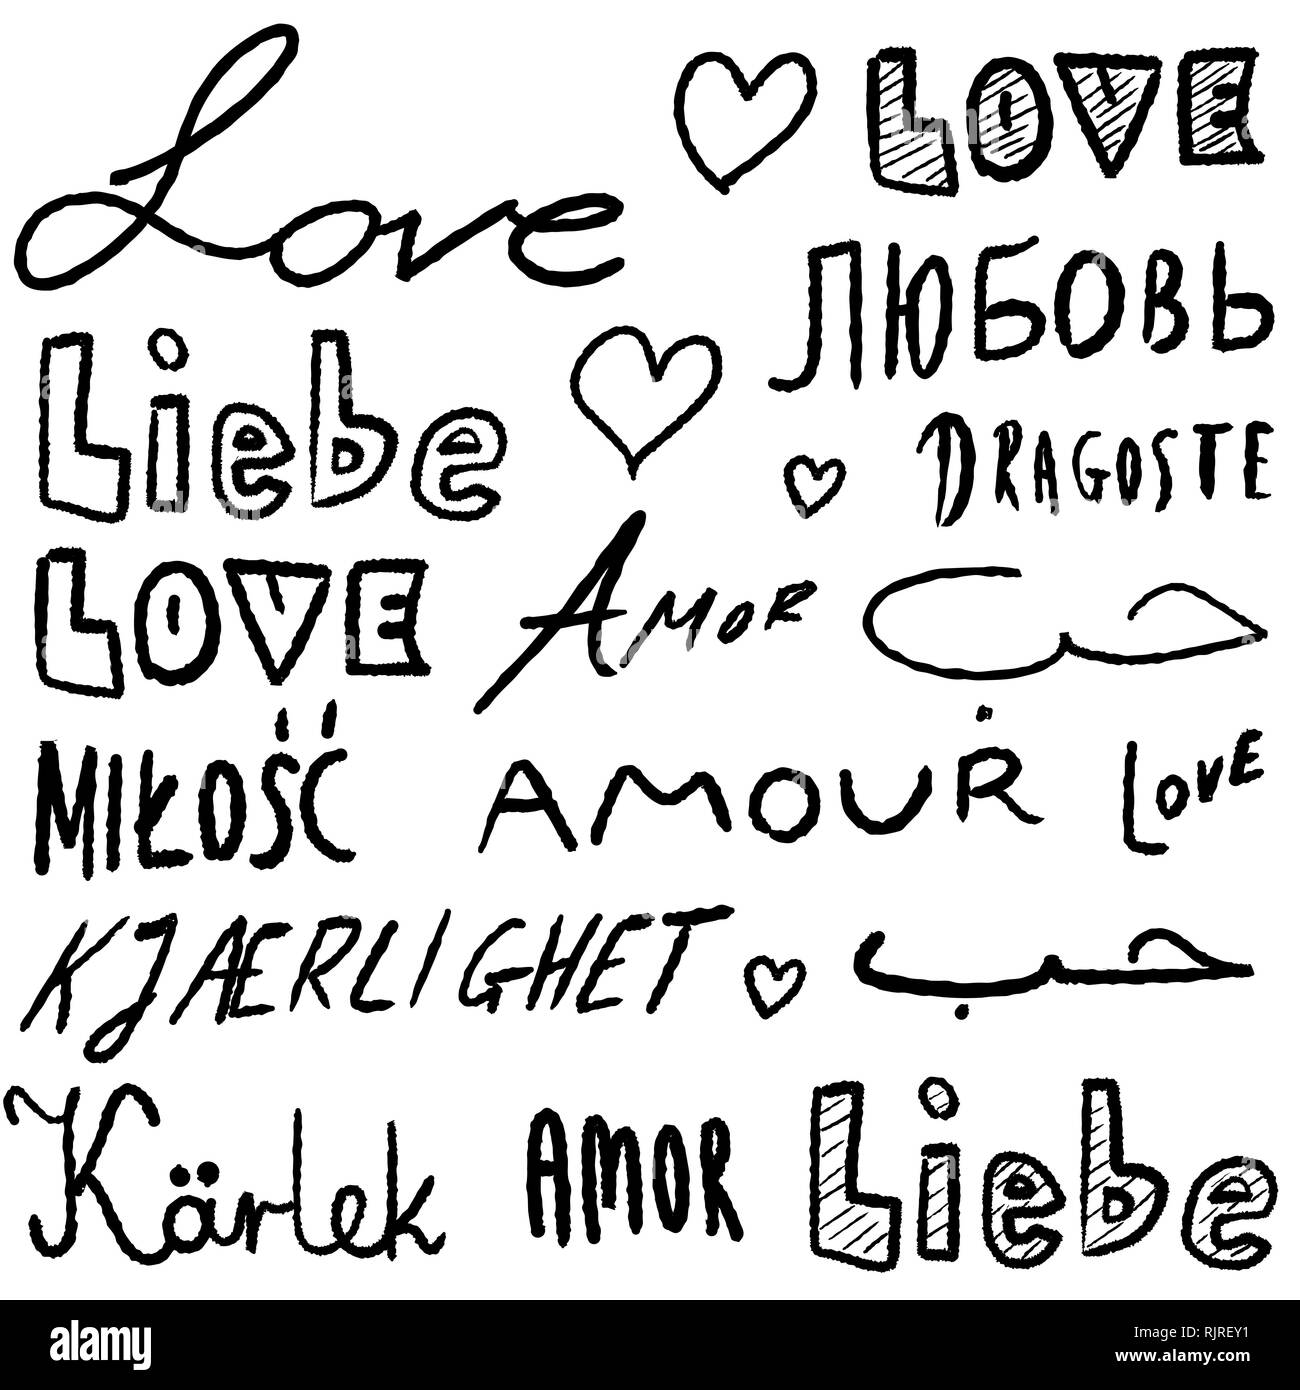 Love
LOVE
ЛЮБОВЬ
Liebe
DRAGOSTE
LOVE
AMOR
حب
MIŁOŚĆ
AMOUR
LOVE
KJÆRLIGHET
حب
Kärlek
AMOR
Liebe
alamy
Image ID: RJREY1
www.alamy.com